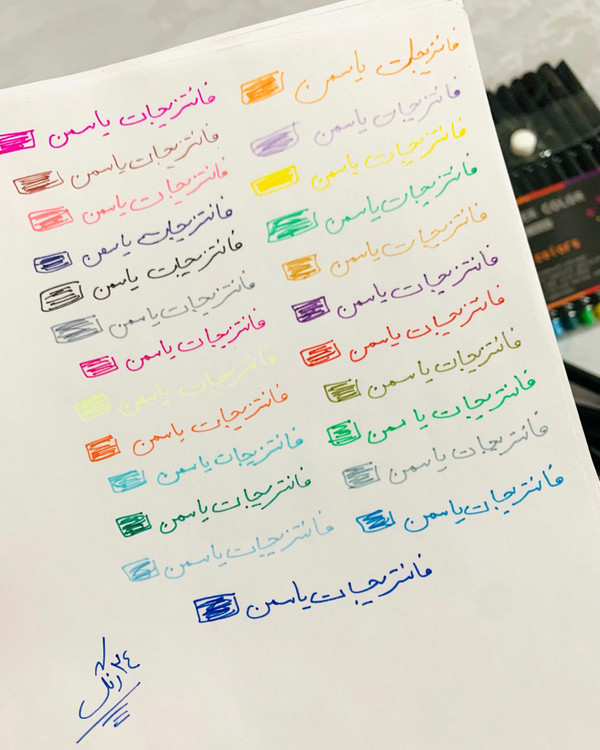 فانتزیجات یاسمن
فانتزیجات یاسمن
فانتزیجات یاسمن
فانتزیجات یاسمن
فانتزیجات یاسمن
فانتزیجات یاسمن
فانتزیجات یاسمن
فانتزیجات یاسمن
فانتزیجات یاسمن
فانتزیجات یاسمن
فانتزیجات یاسمن
فانتزیجات یاسمن
فانتزیجات یاسمن
فانتزیجات یاسمن
فانتزیجات یاسمن
فانتزیجات یاسمن
فانتزیجات یاسمن
فانتزیجات یاسمن
فانتزیجات یاسمن
فانتزیجات یاسمن
فانتزیجات یاسمن
فانتزیجات یاسمن
فانتزیجات یاسمن
فانتزیجات یاسمن
۲٤ رنگ
COLOR